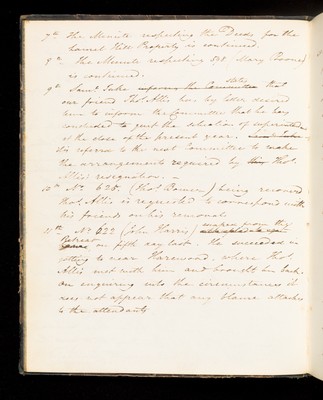 7th The Minute respecting the Deeds for the
Lamel Hill Property is continued.
8th The Minute respecting 508. Mary (Boone)
is continued.
9th Saml. Tuke states that
our friend Thos. Allis has by letter desired
him to inform the Committee that he has
concluded to quit the situation of superintendent
at the close of the present year.
It is referred to the next Committee to make
the arrangements required by Thos.
Allis's resignation. –
10th No. 625. (Thos. ) being removed
Thos. Allis is requested to correspond with
his friends on his removal.
11th No. 622 (John Harris) escaped from the
Retreat on fifth day last. He succeeded in
getting to near Harewood, where Thos.
Allis met with him and brought him back.
On enquiring into the circumstances it
does not appear that any blame attaches
to the attendants